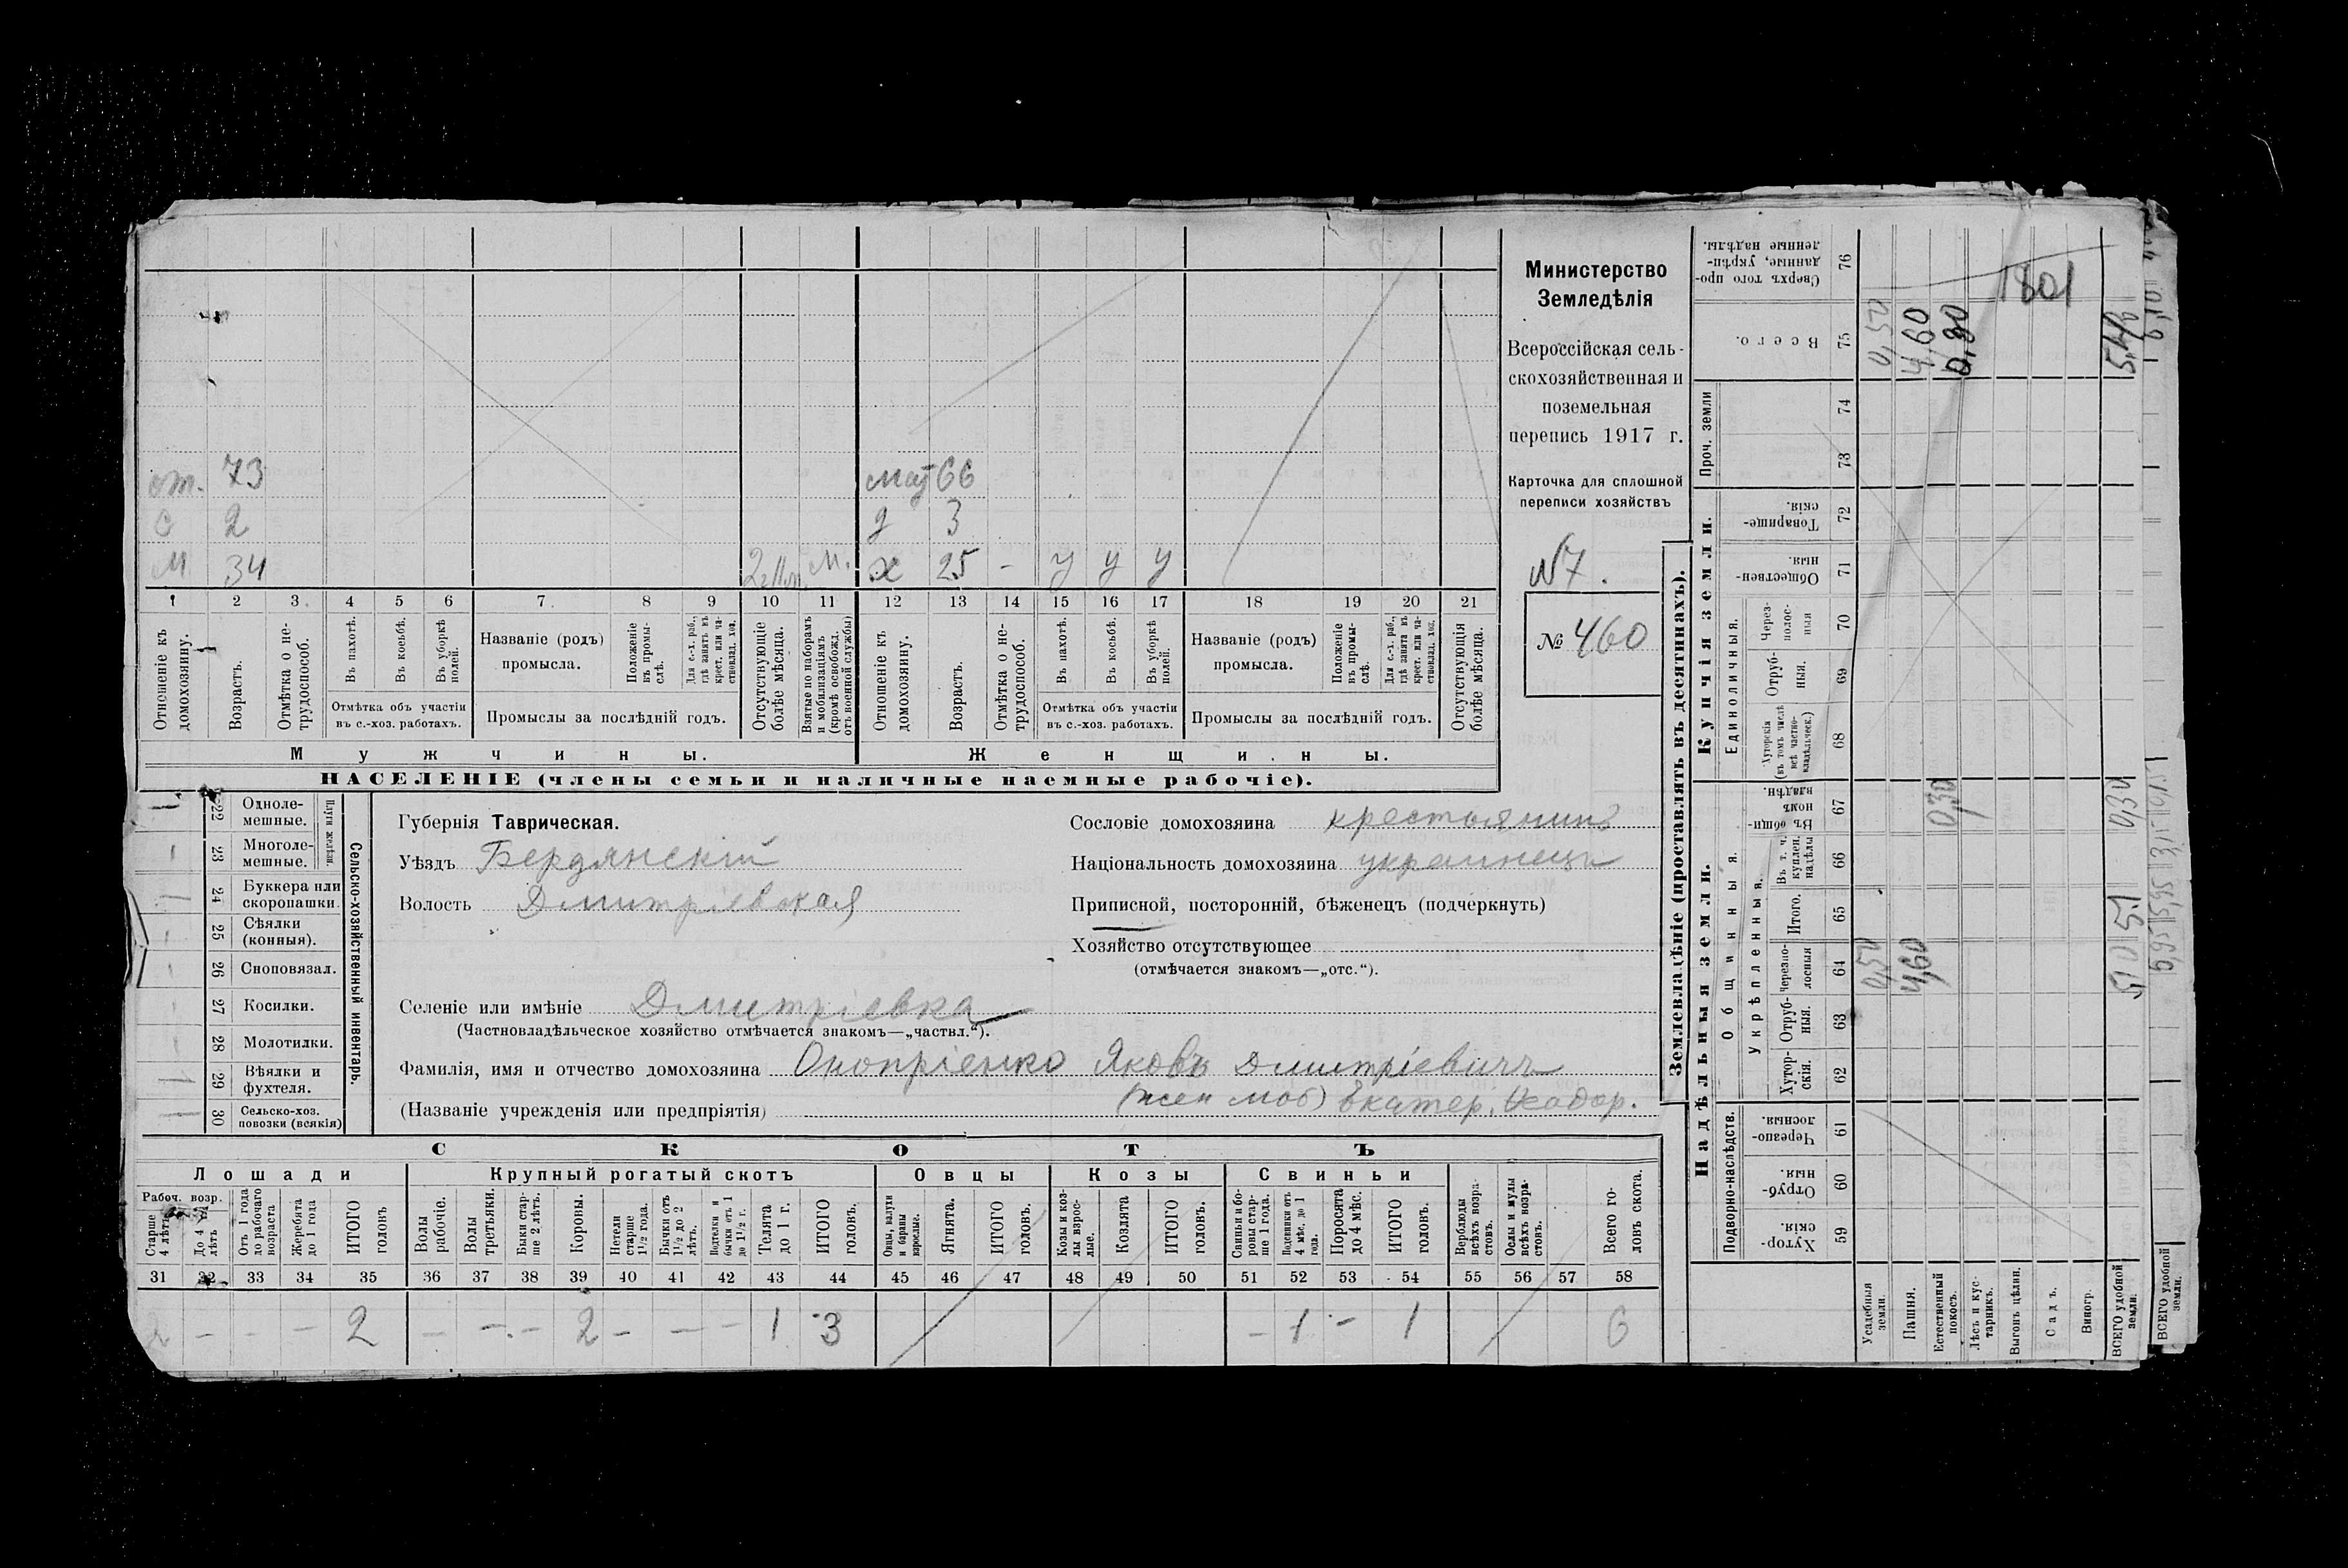 от. 73
с 2
м 34 2 г. м.
мат 66
д 3
х 25 - у у у
1 2 3 4 5 6 7 8 9 10 11 12 13 14 15 16 17 18 19 20 21
Отношеніе къ домохозяину.
Возрастъ.
Отмѣтка о не-трудоспособ.
Въ пахотѣ.
Въ косьбѣ.
Въ уборкѣ полей.
Отмѣтка объ участіи въ с.-хоз. работахъ.
Названіе (родъ) промысла.
Положеніе въ промы-слѣ.
Для с.-х. раб., гдѣ занятъ въ крест. или ча-стновлад. хоз.
Промыслы за послѣдній годъ.
Отсутствующіе болѣе мѣсяца.
Взятые по наборамъ и мобилизаціямъ (кромѣ освобожд. отъ военной службы)
Отношеніе къ домохозяину.
Возрастъ.
Отмѣтка о не-трудоспособ.
Въ пахотѣ.
Въ косьбѣ.
Въ уборкѣ полей.
Отмѣтка объ участіи въ с.-хоз. работахъ.
Названіе (родъ) промысла.
Положеніе въ промы-слѣ.
Для с.-х. раб., гдѣ занята въ крест. или ча-стновлад. хоз.
Промыслы за послѣдній годъ.
Отсутствующія болѣе мѣсяца.
Мужчины. Женщины.
НАСЕЛЕНІЕ (члены семьи и наличные наемные рабочіе).
Министерство
Земледѣлія
Всероссійская сель-
скохозяйственная и
поземельная
перепись 1917 г.
Карточка для сплошной
переписи хозяйствъ
№7.
№ 460
Сельско-хозяйственный инвентарь.
Плуги желѣзн.
22 Одноле-мешные.
23 Многоле-мешные.
24 Буккера или скоропашки.
25 Сѣялки (конныя).
26 Сноповязал.
27 Косилки.
28 Молотилки.
29 Вѣялки и фухтеля.
30 Сельско-хоз. повозки (всякія)
Губернія Таврическая.
Уѣздъ Бердянскій
Волость Дмитріевская
Сословіе домохозяина крестьянинъ
Національность домохозяина украинецъ
Приписной, посторонній, бѣженецъ (подчеркнуть)
Хозяйство отсутствующее
(отмѣчается знакомъ—„отс.“).
Селеніе или имѣніе Дмитріевка
(Частновладѣльческое хозяйство отмѣчается знакомъ—„частвл.“).
Фамилія, имя и отчество домохозяина Оноприенко Яковъ Дмитріевичъ
(Названіе учрежденія или предпріятія) (жен моб) Екатер. Исадор.
СКОТЪ
Лошади Крупный рогатый скотъ Овцы Козы Свиньи
Рабоч. возр.
Старше 4 лѣтъ
До 4 лѣтъ
Отъ 1 года до рабочаго возраста
Жеребята до 1 года
ИТОГО головъ
Волы рабочіе.
Волы третьяки.
Быки стар-ше 2 лѣтъ.
Коровы.
Нетели старше 1½ года.
Бычки отъ 1½ до 2 лѣтъ.
Подтелки и бычки отъ 1 до 1½ г.
Телята до 1 г.
ИТОГО головъ.
Овцы, валухи и бараны взрослые.
Ягнята.
ИТОГО головъ.
Козы и коз-лы взрос-лые.
Козлята
ИТОГО головъ.
Свиньи и бо-ровы стар-ше 1 года.
Подсвинки отъ 4 мѣс. до 1 года.
Поросята до 4 мѣс.
ИТОГО головъ.
Верблюды всѣхъ возра-стовъ.
Ослы и мулы всѣхъ возра-стовъ.
Всего го-ловъ скота.
31 32 33 34 35 36 37 38 39 40 41 42 43 44 45 46 47 48 49 50 51 52 53 54 55 56 57 58
2 - - - 2 - - - 2 - - - 1 3 - 1 - 1 6
Землевладѣніе (проставлять въ десятинахъ).
Надѣльныя земли. Купчія земли.
Подворно-наслѣдств. Общинныя. Единоличныя.
Укрѣпленныя.
Хутор-скія. 59
Отруб-ныя. 60
Черезпо-лосныя. 61
Хутор-скія. 62
Отруб-ныя. 63
Черезпо-лосныя 64
Итого. 65
Въ т. ч. куплен. надѣлы 66
Въ общин-номъ владѣн. 67
Хуторскія (въ томъ числѣ всѣ частно-владѣльческ.) 68
Отруб-ныя. 69
Через-полос-ныя 70
Обществен-ныя 71
Товарище-скія. 72
Проч. земли 73 74
Всего. 75
Сверхъ того про-данные, укрѣп-ленные надѣлы. 76
Усадебныя земли. 0,50 0,50
Пашня. 4,60 4,60
Естественный покосъ. 0,30 0,30
Лѣсъ и кус-тарникъ.
Выгонъ цѣлин.
Садъ.
Виногр.
ВСЕГО удобной земли. 5,1 0,30
ВСЕГО удобной земли.
1801